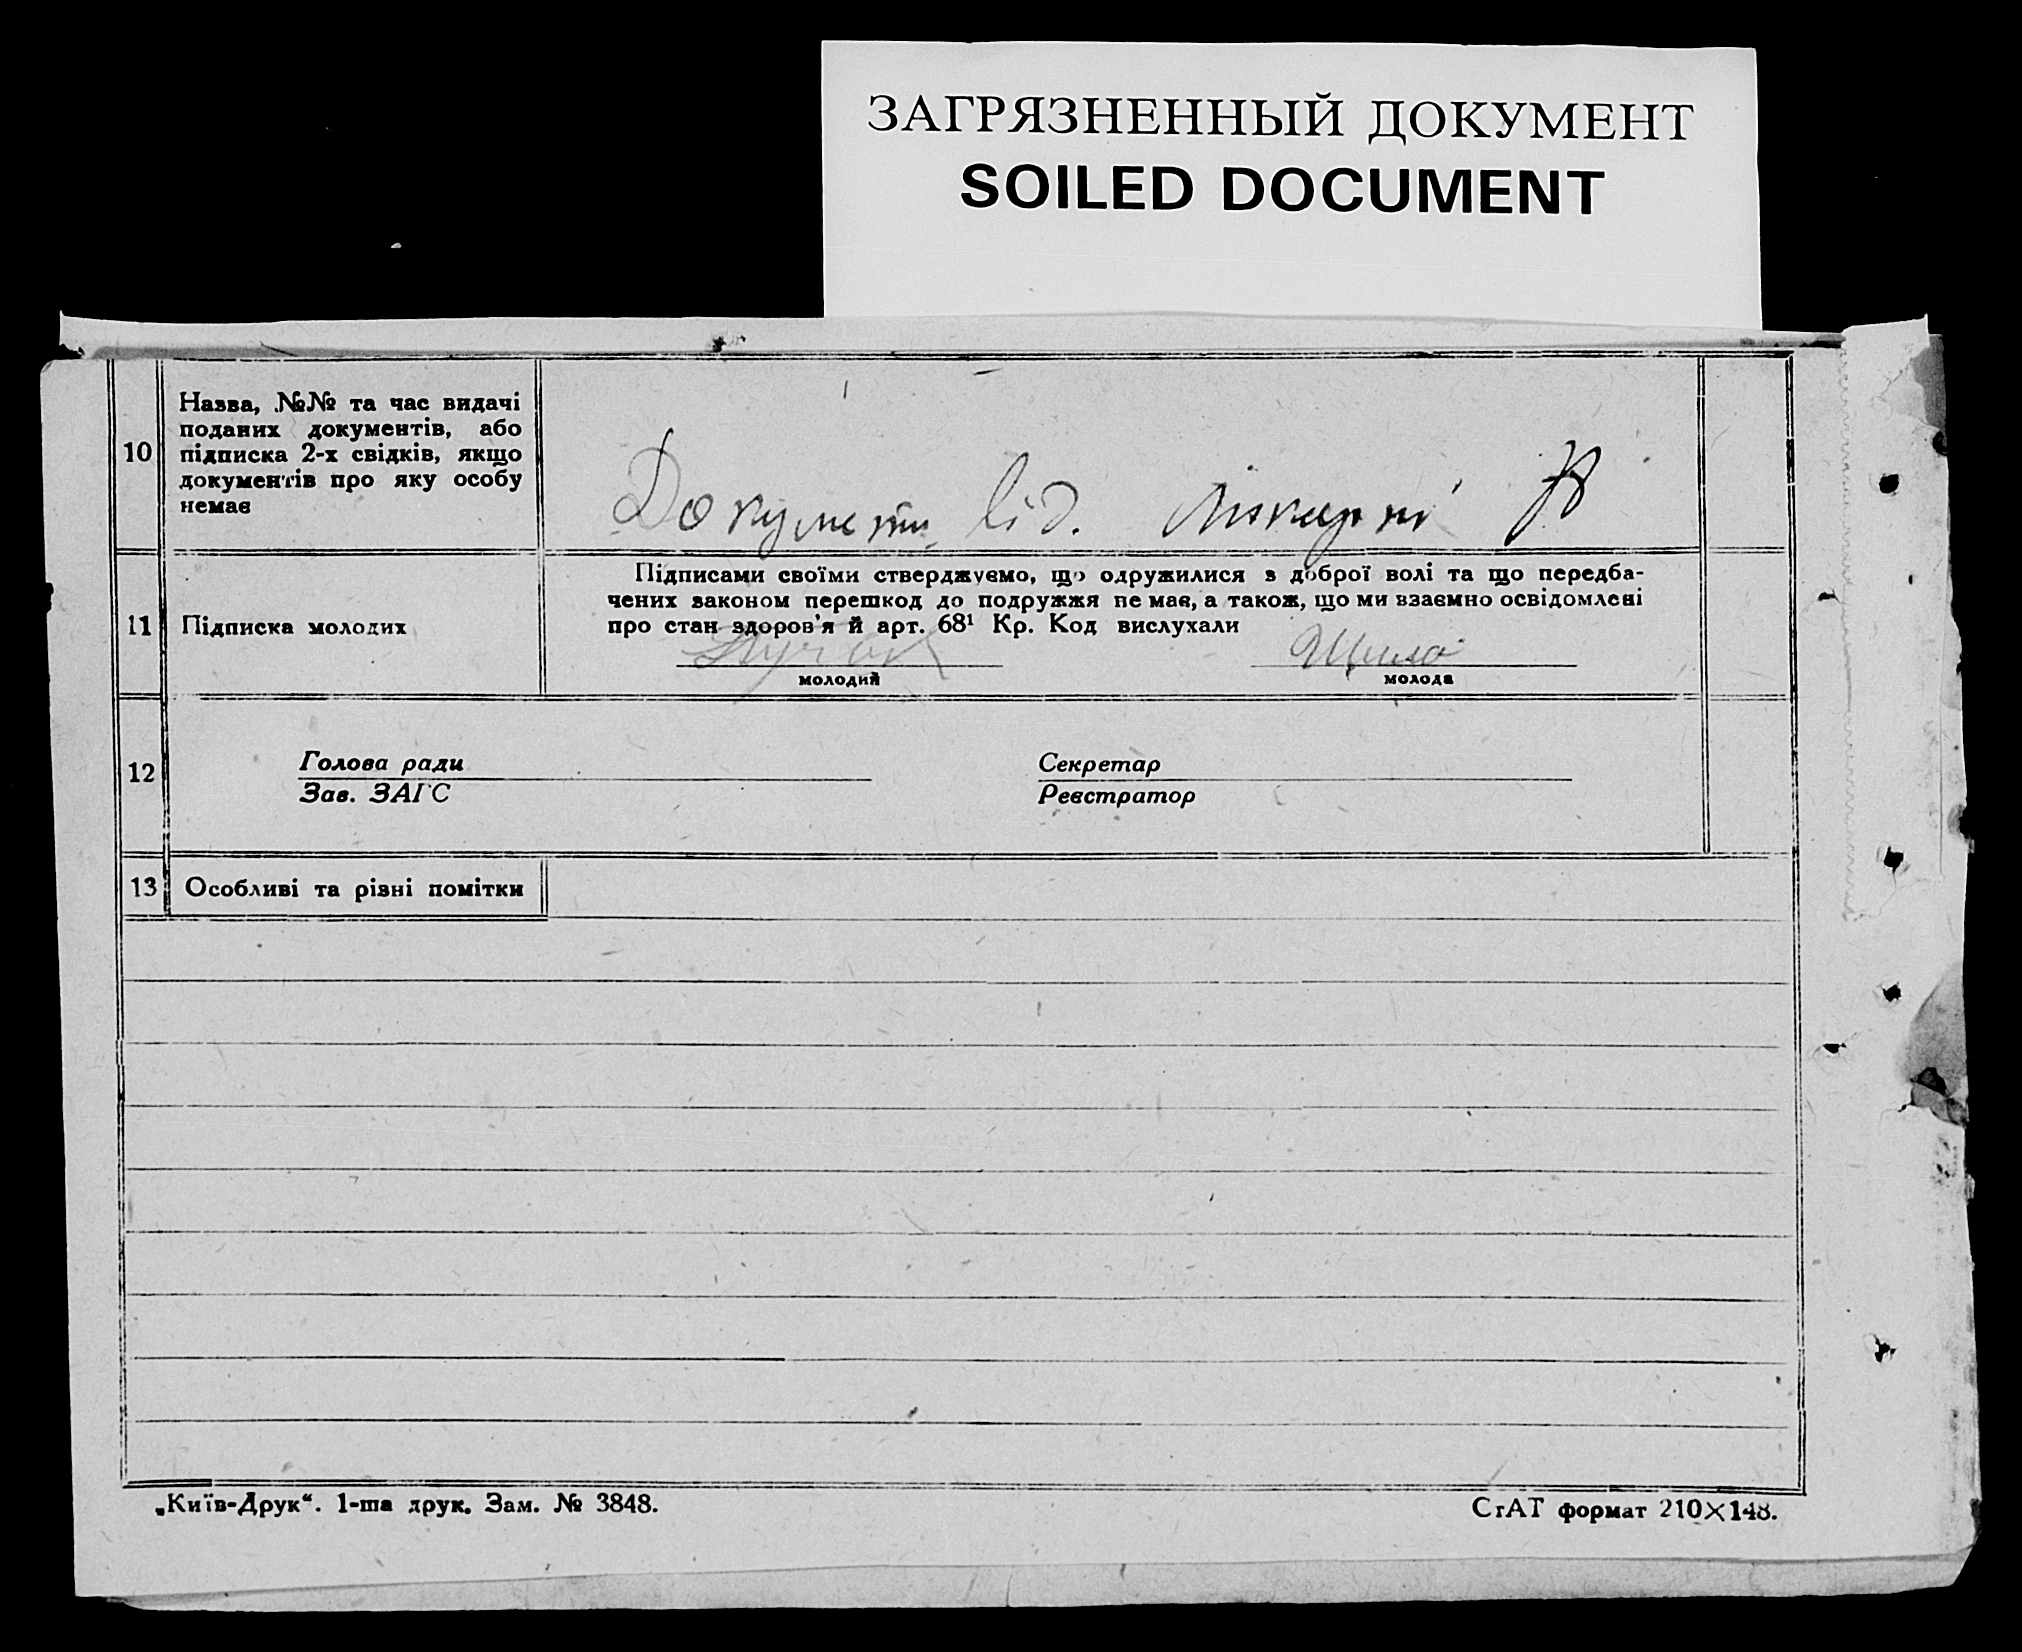 ЗАГРЯЗНЕННЫЙ ДОКУМЕНТ
SOILED DOCUMENT
10
Назва, №№ та час видачі
поданих документів, або
підписка 2-х свідків, якщо
документів про яку особу
немає
Документи від.
11
Підписка молодих
Підписами своїми стверджуємо, що одружилися з доброї волі та що передба-
чених законом перешкод до подружжя не має, а також, що ми взаємно освідомлені
про стан здоров'я й арт. 68¹ Кр. Код вислухали
молодий
молода
12
Голова ради
Зав. ЗАГС
Секретар
Реєстратор
13
Особливі та різні помітки
„Київ-Друк“. 1-ша друк. Зам. № 3848.
СтАТ формат 210×148.